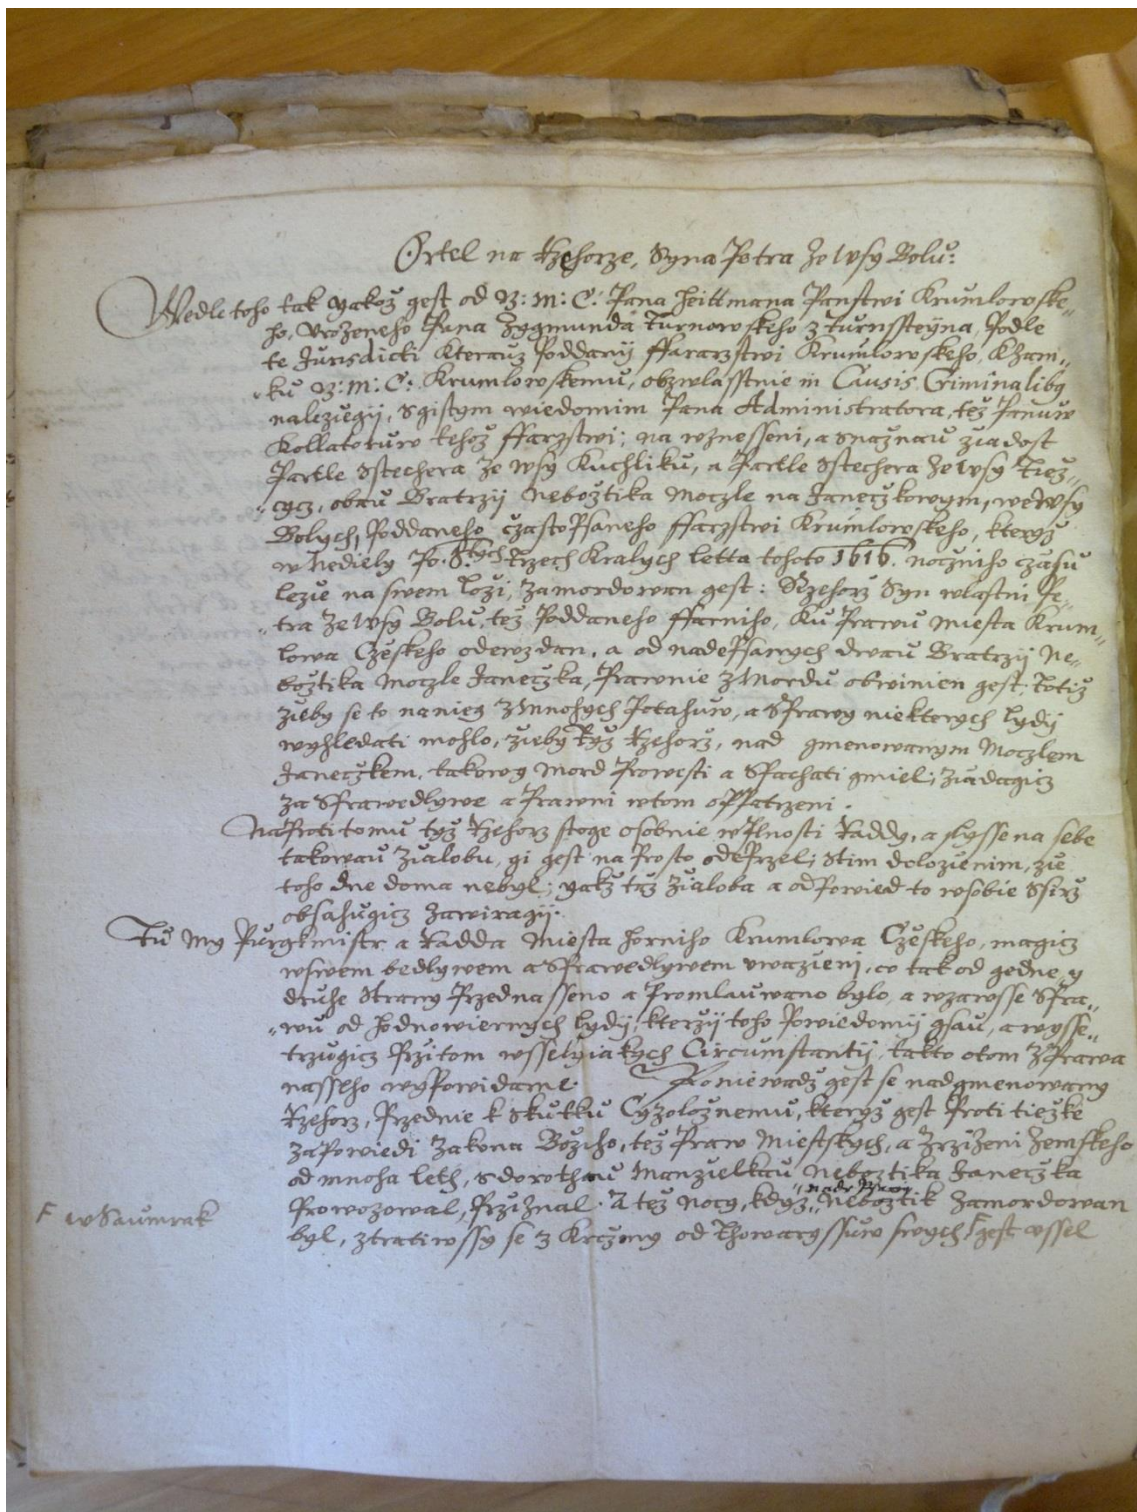 Ortel na Rzehorze, Syna Petra ze wsy Bolu:
Wedle toho tak yakoz gest od W: M: C: Pana Heittmana Panstwi Krumlowske„
ho, Urozeneho Pana Zygmunda Turnowskeho z Turnssteyna, Podle
te Jurisdicti kterauz Poddanij ffararzstwi Krumlowskeho, k Zam„
„ku W: M: C: Krumlowskemu, obzwlasstnie in Causis Criminaliby
nalezugij, s gistym wiedomim Pana Administratora, tez Panuw
Kollatoruw tehoz ffarzstwi; na wznesseni, a snaznau zuadost
Partle Stechera ze wsy Kuchliku, a Partle Stechera ze wsy Tiez„
„cycz, obau Bratrzij Neboztika Moczle na Janeczkowym, we wsy
Bolych, Poddaneho czasto Psaneho ffarzstwi Krumlowskeho, kteryz
w Nediely Po S. Trzech Kralych letta tohoto 1616. noczniho czasu
leze na swem lozi, zamordowan gest: Rzehorz Syn wlastni Pe„
„tra ze wsy Bolu, tez Poddaneho ffarniho, ku Prawu Miesta Krum„
lowa Czeskeho odewzdan, a od nadepsanych dwau Bratrzij Ne„
boztika Moczle Janeczka, Prawnie z Mordu obwinien gest. Totiz
zueby se to na nieg z mnohych Potahuw, a Sprawy niekterych lydij
wyhledati mohlo, zueby tyz Rzehorz, nad gmenowanym Moczlem
Janeczkem, takowy Mord Prowesti a Spachati gmiel; zuadagicz
za Sprawedlywe a Prawni w tom oppatrzeni.
Naproti tomu tyz Rzehorz stoge osobnie w Plnosti Raddy, a slysse na sebe
takowau zualobu, gi gest na Prosto odeprzel; s tim dolozuenim, zue
toho dne doma nebyl; yakz taz zualoba a odpowied to w sobie Ssirz
obsahugicz zawiragij.
Tu My Purgkmistr a Radda Miesta Horniho Krumlowa Czeskeho, magicz
w swem bedlywem a Sprawedlywem uwazueni, co tak od gedne y
druhe Strany Przednasseno a Promlauwano bylo, a wzawsse Spra„
„wu od hodnowiernych lydij, kterzij toho Powiedomij gsau, a wysse„
trzugicz Przitom wsselyiakych Circumstantij, takto o tom z Prawa
nasseho wypowidame. Poniewadz gest se nadgmenowany
Rzehorz, Przednie k Skutku Cyzoloznemu, kteryz gest Proti tiezke
zapowiedi Zakona Boziho, tez Praw Miestskych, a Zrzizeni Zemskeho
od mnoha leth, s Dorothau Manzuelkau Neboztika Janeczka
Prowozowal, Przi znal. A tez nocy, kdyz Neboztik zamordowan
F w Saumrak
byl, ztratiwssy se z Krczmy od Thowaryssuw swych F gest ussel